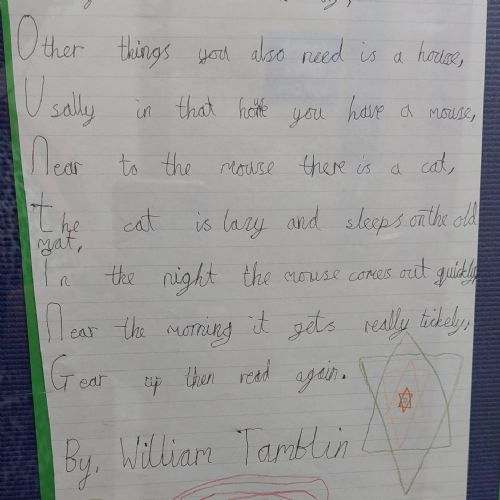 Other things you also need is a house,
Usally in that home you have a mouse,
Near to the mouse there is a cat,
The cat is lazy and sleeps on the old
mat,
In the night the mouse comes out quickly,
Near the morning it gets really tickely,
Gear up then read again.
By, William Tamblin